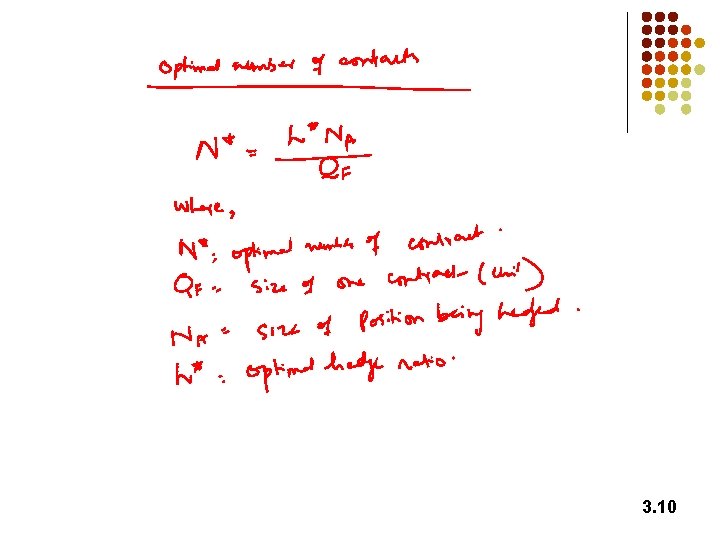 Optimal number of contracts
N* = h* NA / QF
where,
N* : optimal number of contract.
QF = size of one contract (unit)
NA = size of position being hedged.
h* : optimal hedge ratio.
3.10